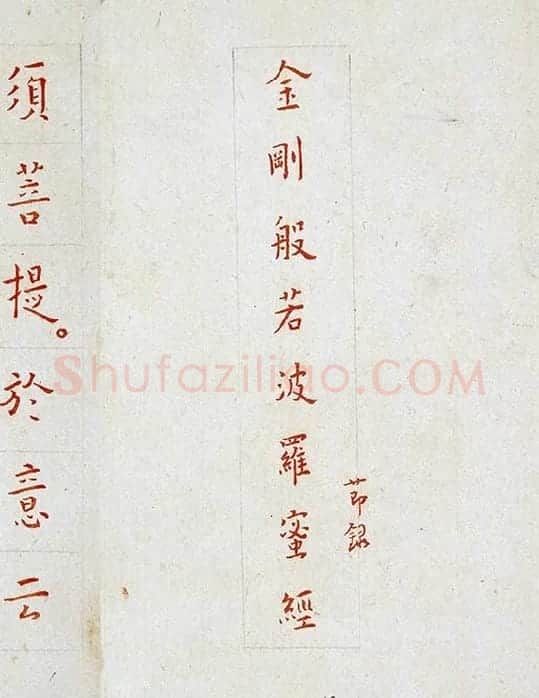 金剛般若波羅蜜經
節錄
須菩提。於意云
Shufaziliao.COM